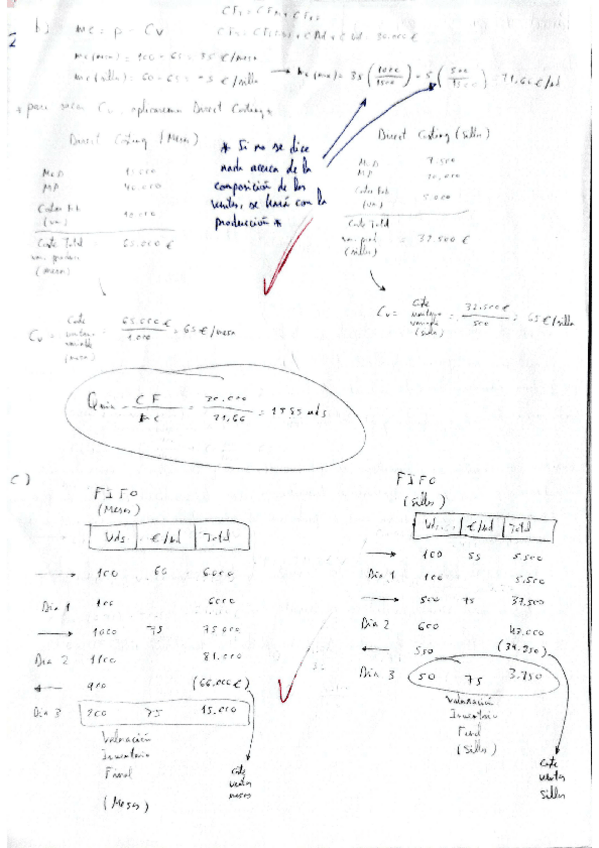 b) mc = p - Cv
mc (mesa) = 100 - 65 = 35 €/mesa
mc (silla) = 60 - 65 = -5 €/silla → mc (mix) = 35 (1000/1500) - 5 (500/1500) = 21,66 €/ud
* para sacar Cv, aplicaremos Direct Costing *
Direct Costing (Mesas)
MOD
MP 40.000
Costes Fab. (var)
Coste Total var. (mesas) 65.000 €
* Si no se dice
nada acerca de la
composición de las
ventas, se hará con la
producción *
Direct Costing (sillas)
MOD 7.500
MP 20.000
Costes Fab. (var) 5.000
Coste Total var. prod (sillas) = 32.500 €
Cv = Coste ventas variable (mesa) = 65.000 € / 1.000 = 65 €/mesa
Cv = Coste ventas variable (silla) = 32.500 € / 500 = 65 €/silla
Qmin = CF / mc = / 21,66 = uds
c)
FIFO
(Mesas)
Uds €/ud Total
→ 100 60 6000
Día 1 100 6000
→ 1000 75 75.000
Día 2 1100 81.000
← 900 (66.000 €)
Día 3 200 75 15.000
Valoración
Inventario
Final
(Mesas)
coste
ventas
mesas
FIFO
(Sillas)
Uds. €/ud Total
→ 100 55 5.500
Día 1 100 5.500
→ 500 75 37.500
Día 2 600 43.000
← 550 (39.250)
Día 3 50 75 3.750
Valoración
Inventario
Final
(Sillas)
coste
ventas
sillas